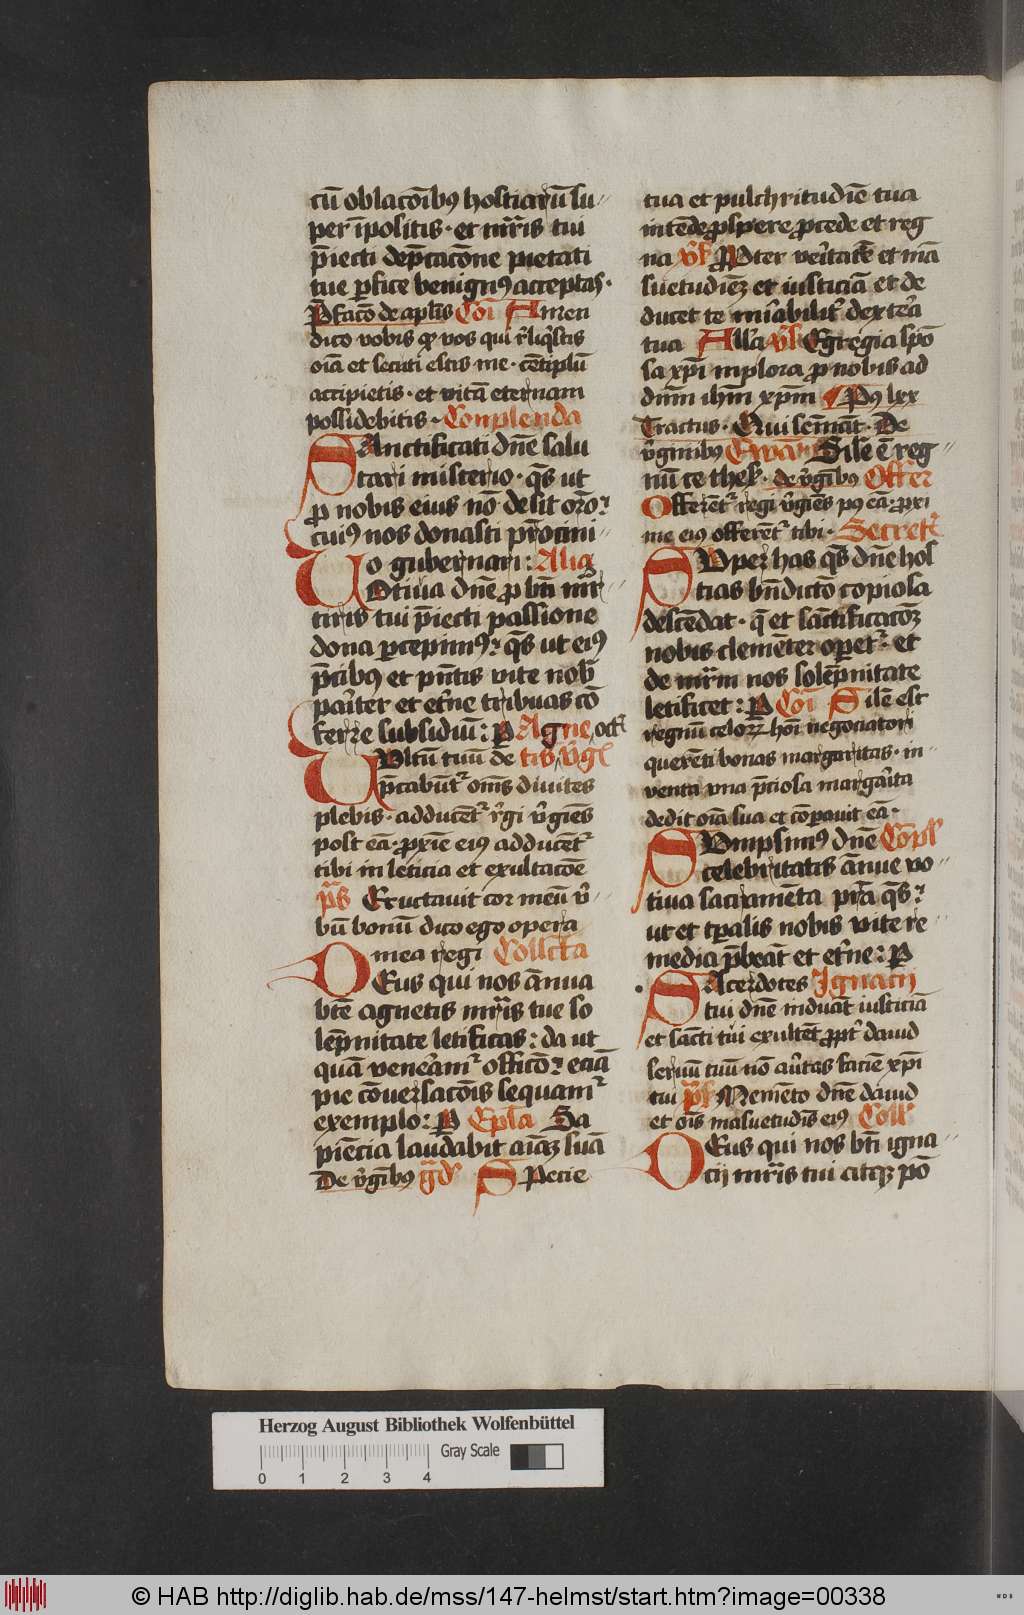 cū oblacōibꝰ hostiarū su⸗
per īpositis · et mr̄is tui
p̄iecti dep̄cacōne pietati
tue ꝑfice benignꝰ acceptas ·
P̄facō de aplis Cōi Amen
dico vobis ꝙ vos qui r̄liq̄stis
oīa et secuti estis me · cētiplū
accipietis · et vitā eternam
possidebitis · Conplenda
SAnctificati dn̄e salu
tari misterio · qs̄ ut
ꝓ nobis eius nō desit orō :
cuiꝰ nos donasti pr̄ocini⸗
o gubernari : Alia
VOtiua dn̄e ꝓ bt̄i mr̄
tiris tui p̄iecti passione
dona ꝑcepimꝰ : qs̄ ut eiꝰ
p̄cibꝰ et pn̄tis vite nob̄
par̄iter et et̄ne tribuas cō
ferre subsidiū : P Agne, oct
VUltū tuū de tis v̄gꝭ
p̄cabūt᷑ om̄s diuites
plebis · adducēt᷑ r̄gi v̄giēs
post eā · ꝓxīe eiꝰ adducēt᷑
tibi in leticia et exultacōe
p̄s Eructauit cor meū v̄
bū bonū dico ego opera
mea regi Collc̄ta
DEus qui nos ānua
btē agnetis mr̄is tue so
lēpnitate letificas : da ut
quā venerām᷑ officō : etiā
pie cōuersacōis sequam᷑
exemplo : P Ep̄la Sa
piēcia laudabit aīaꝫ suā
De v̄gībꝰ gͣd᷑ Specie
tua et pulchritudīe tua
intēde ꝓspere ꝓcede et reg
na v̄s PRopter veritatē et mā
suetudīeꝫ et iusticiā et de
ducet te mirabilit᷑ dextera
tua All̄a v̄s Egregia spō
sa xp̄i inplora ꝓ nobis ad
dn̄m ihm̄ xp̄m Pꝰ lxx
Tractus · Qui semīāt · De
v̄ginibꝰ Ewā Silē ē reg⸗
nū ce thes · de v̄gībꝰ Offer
Offerēt᷑ regi v̄giēs pꝰ eā · ꝓxi
me eiꝰ offerēt᷑ tibi · Secret᷑
SUper has qs̄ dn̄e hos
tias bn̄dictō copiosa
descēdat · q̄ et sāctificacōꝫ
nobis clemēter oꝑet᷑ · et
de mr̄m nos solēpnitate
letificet : P Cōi Silē est
regnū celoꝝ hōi negociatori
querēti bonas margaritas · in⸗
uenta vna p̄ciosa margarita
dedit oīa sua et cōꝑauit eā ·
SUmpsimꝰ dn̄e Cōpl̄
celebritatis ānue vo⸗
tiua sacramēta pr̄a qs̄ :
ut et tꝑalis nobis vite re⸗
media p̄beāt et et̄ne : P
SAcerdotes Ignacij
tui dn̄e induāt iusticiā
et sācti tui exultēt ꝓpt᷑ dauid
seruū tuū nō aūtas faciē xp̄i
tui p̄s Memēto dn̄e dauid
et oīs māsuetudīs eiꝰ Coll̄
DEus qui nos bt̄i igna⸗
cij mr̄is tui
Herzog August Bibliothek Wolfenbüttel
0 1 2 3 4 Gray Scale
© HAB http://diglib.hab.de/mss/147-helmst/start.htm?image=00338